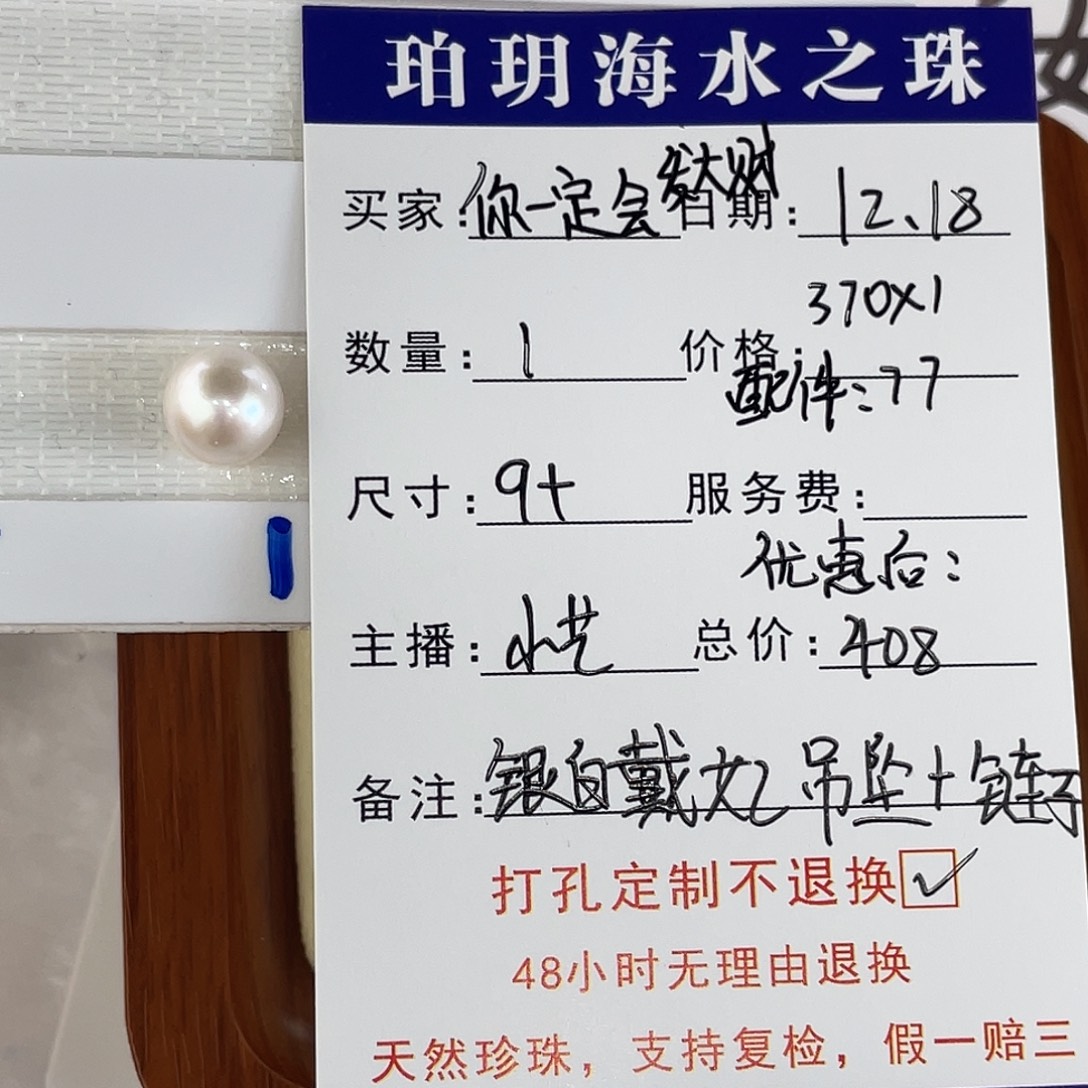 珀玥海水之珠
买家:你一定会发大财 日期:12.18
370X1
数量:1 价格:
配件:77
尺寸:9+ 服务费:
优惠后:
主播:小艺 总价:408
备注:银白戴妃吊坠+链子
打孔定制不退换☑
48小时无理由退换
天然珍珠，支持复检，假一赔三